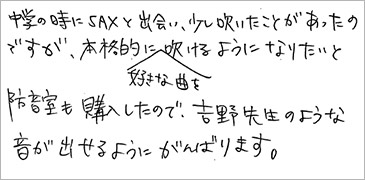 中学の時にSAXと出会い、少し吹いたことがあったの
ですが、本格的に吹けるようになりたいと
好きな曲を
防音室も購入したので、吉野先生のような
音が出せるようにがんばります。